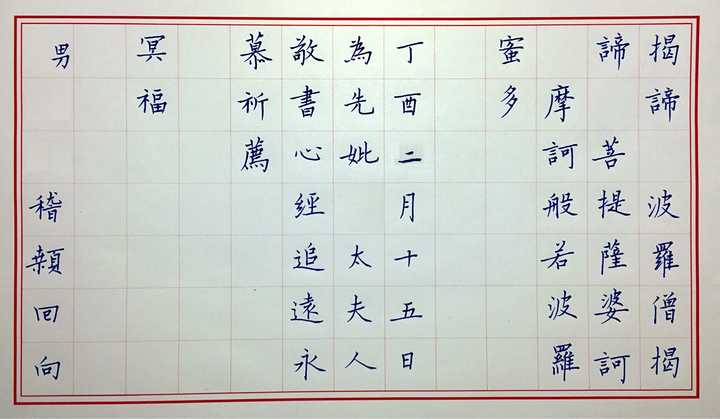 揭諦 波羅僧揭
諦 菩提薩婆訶
摩訶般若波羅
蜜多
丁酉二月十五日
為先妣 太夫人
敬書心經追遠永
慕祈薦
冥福
男 稽顙回向